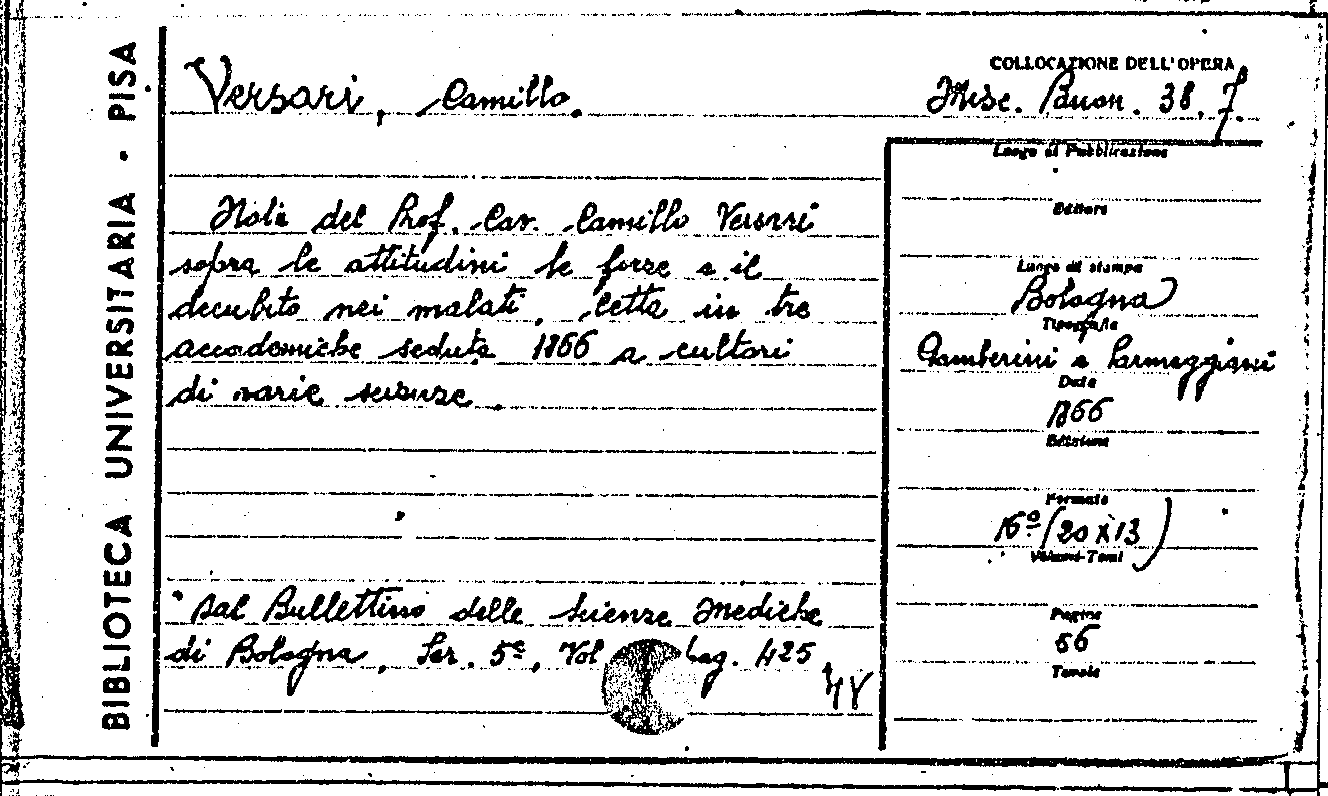 BIBLIOTECA UNIVERSITARIA · PISA
Versari, Camillo.
COLLOCAZIONE DELL'OPERA
Misc. Buon. 38. 7.
Note del Prof. Cav. Camillo Versari
sopra le attitudini le forze e il
decubito nei malati, letta in tre
accademiche sedute 1866 a cultori
di varie scienze.
Dal Bullettino delle Scienze Mediche
di Bologna, Ser. 5ª, Vol pag. 425
Luogo di Pubblicazione
Editore
Luogo di stampa
Bologna
Tipografia
Gamberini e Parmeggiani
Data
1866
Edizione
Formato
16º (20 x 13)
Volumi-Tomi
Pagine
56
Tavole